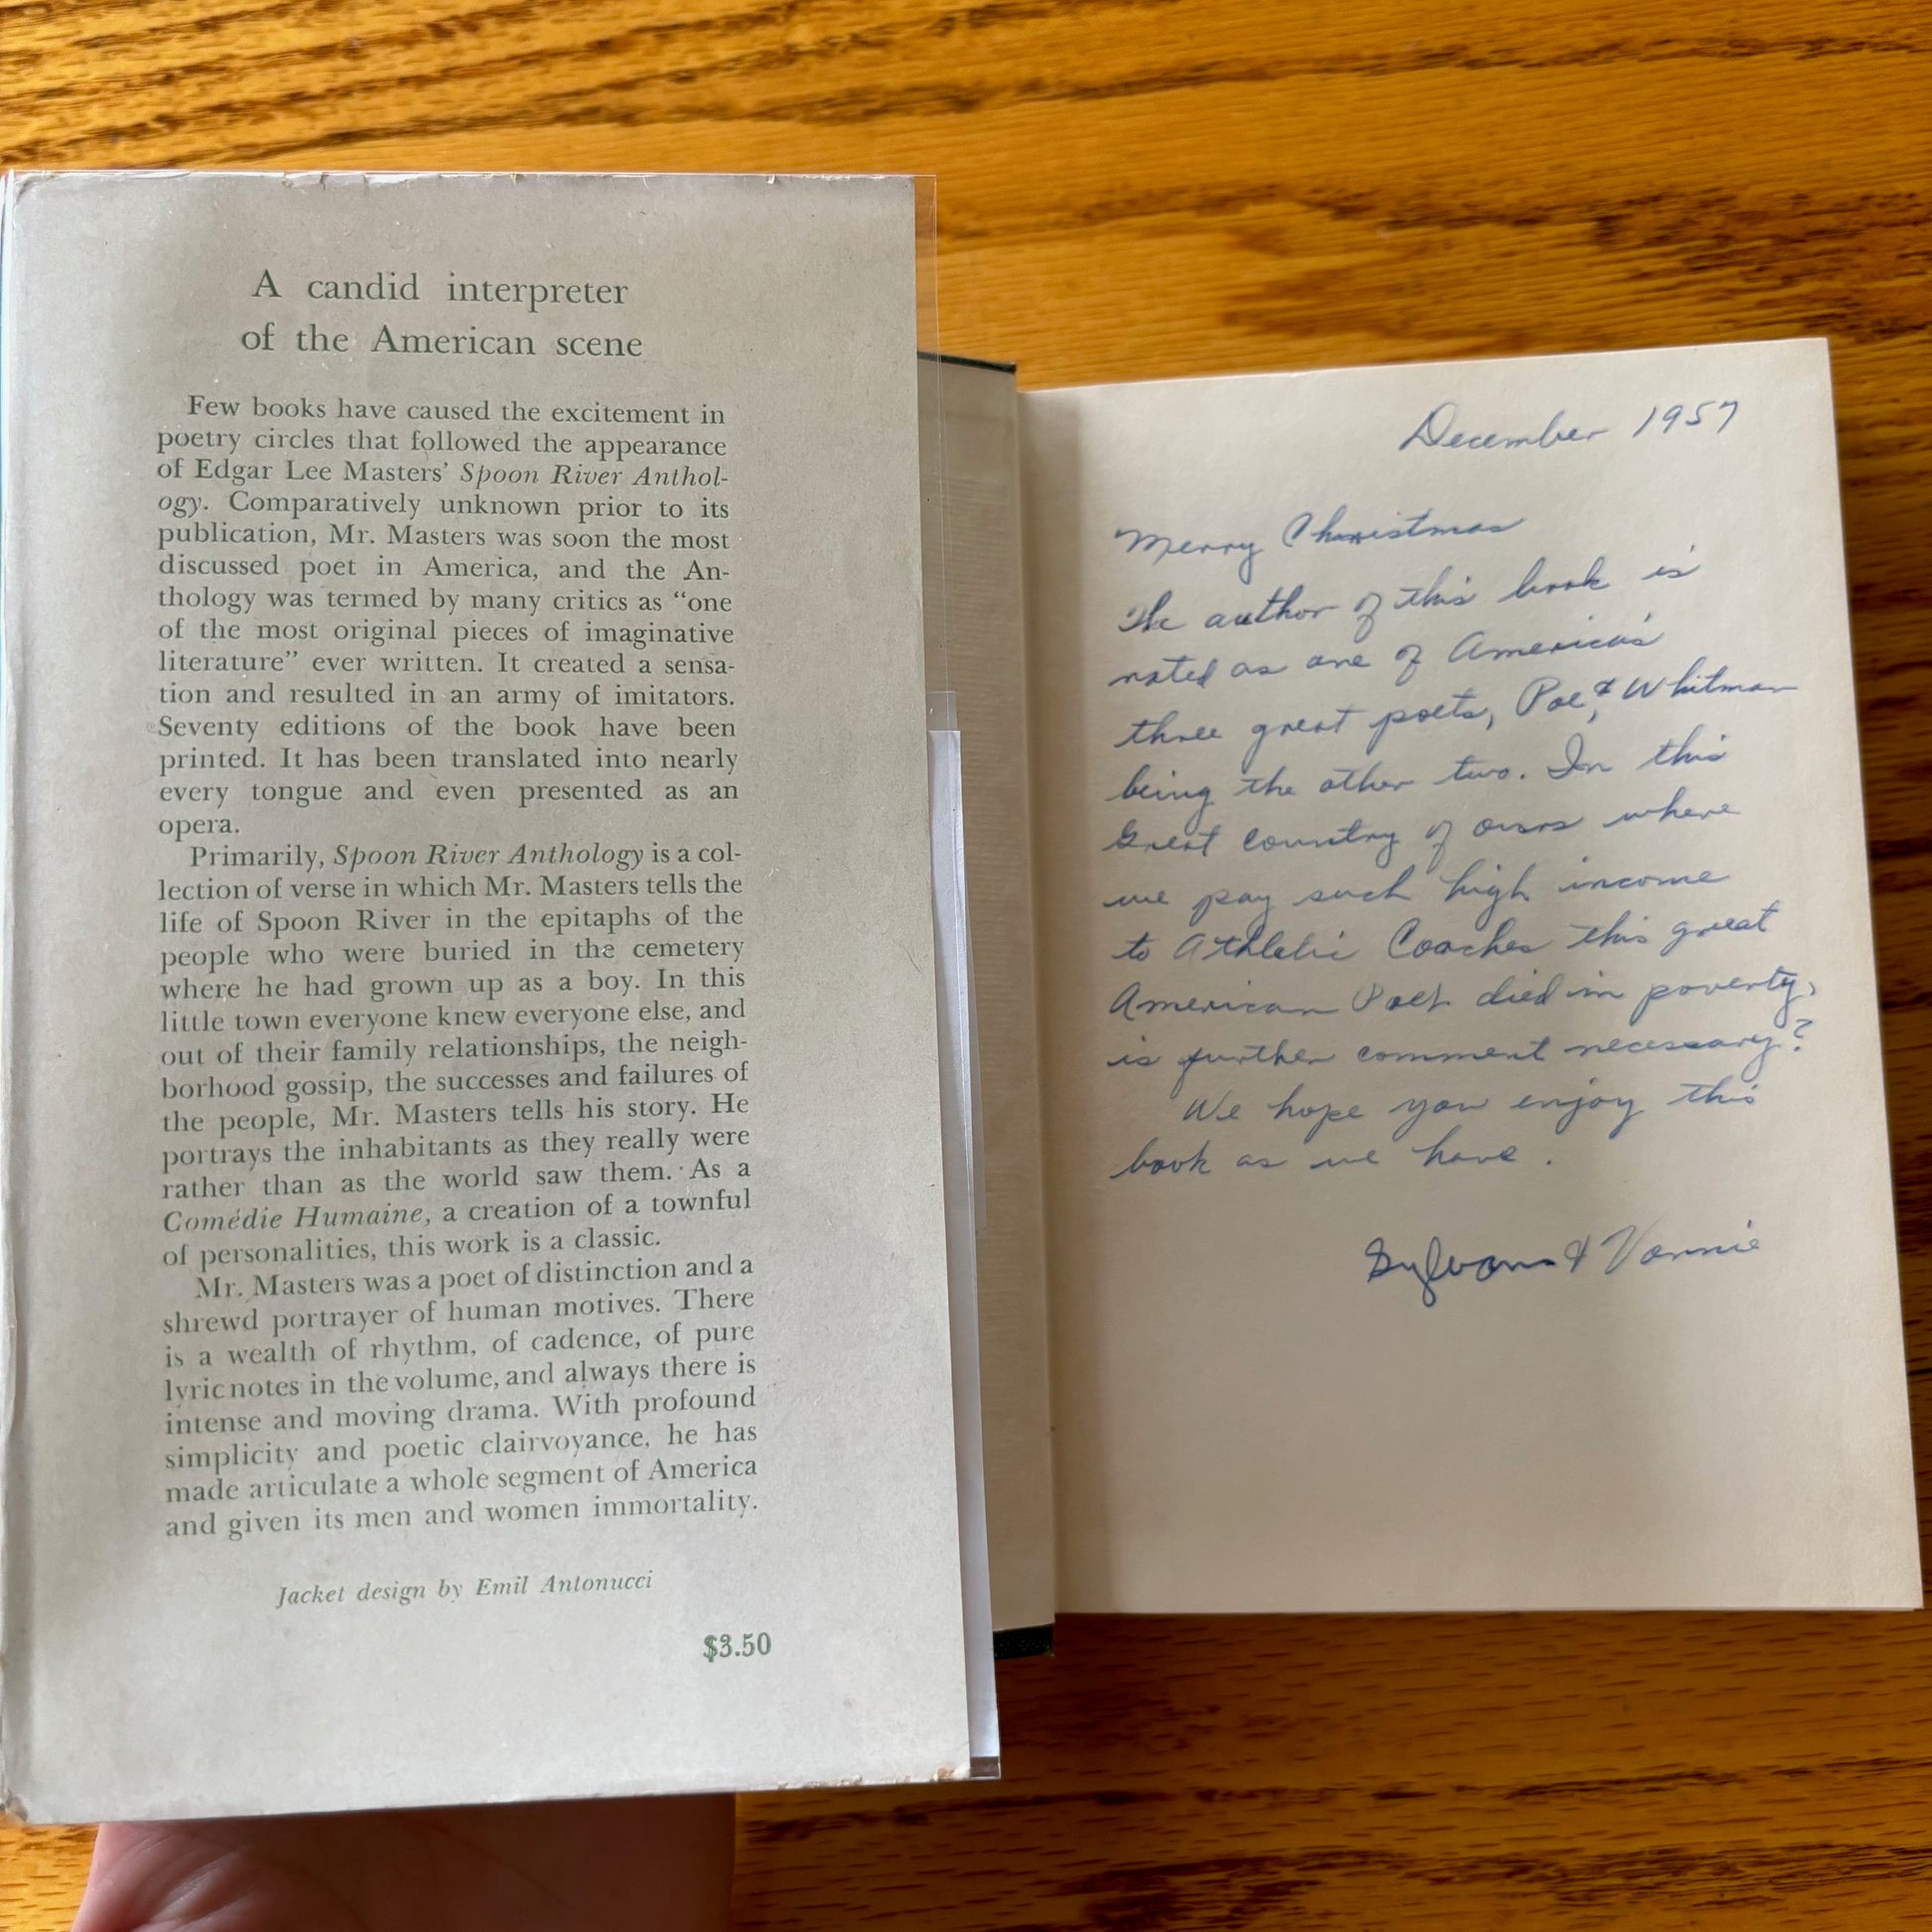 A candid interpreter
of the American scene
Few books have caused the excitement in
poetry circles that followed the appearance
of Edgar Lee Masters’ Spoon River Anthol-
ogy. Comparatively unknown prior to its
publication, Mr. Masters was soon the most
discussed poet in America, and the An-
thology was termed by many critics as “one
of the most original pieces of imaginative
literature” ever written. It created a sensa-
tion and resulted in an army of imitators.
Seventy editions of the book have been
printed. It has been translated into nearly
every tongue and even presented as an
opera.
Primarily, Spoon River Anthology is a col-
lection of verse in which Mr. Masters tells the
life of Spoon River in the epitaphs of the
people who were buried in the cemetery
where he had grown up as a boy. In this
little town everyone knew everyone else, and
out of their family relationships, the neigh-
borhood gossip, the successes and failures of
the people, Mr. Masters tells his story. He
portrays the inhabitants as they really were
rather than as the world saw them. As a
Comédie Humaine, a creation of a townful
of personalities, this work is a classic.
Mr. Masters was a poet of distinction and a
shrewd portrayer of human motives. There
is a wealth of rhythm, of cadence, of pure
lyric notes in the volume, and always there is
intense and moving drama. With profound
simplicity and poetic clairvoyance, he has
made articulate a whole segment of America
and given its men and women immortality.
Jacket design by Emil Antonucci
$3.50
December 1957
Merry Christmas
The author of this book is
noted as one of America's
three great poets, Poe, & Whitman
being the other two. In this
Great Country of ours where
we pay such high income
to Athletic Coaches this great
American Poet died in poverty,
is further comment necessary?
We hope you enjoy this
book as we have.
&